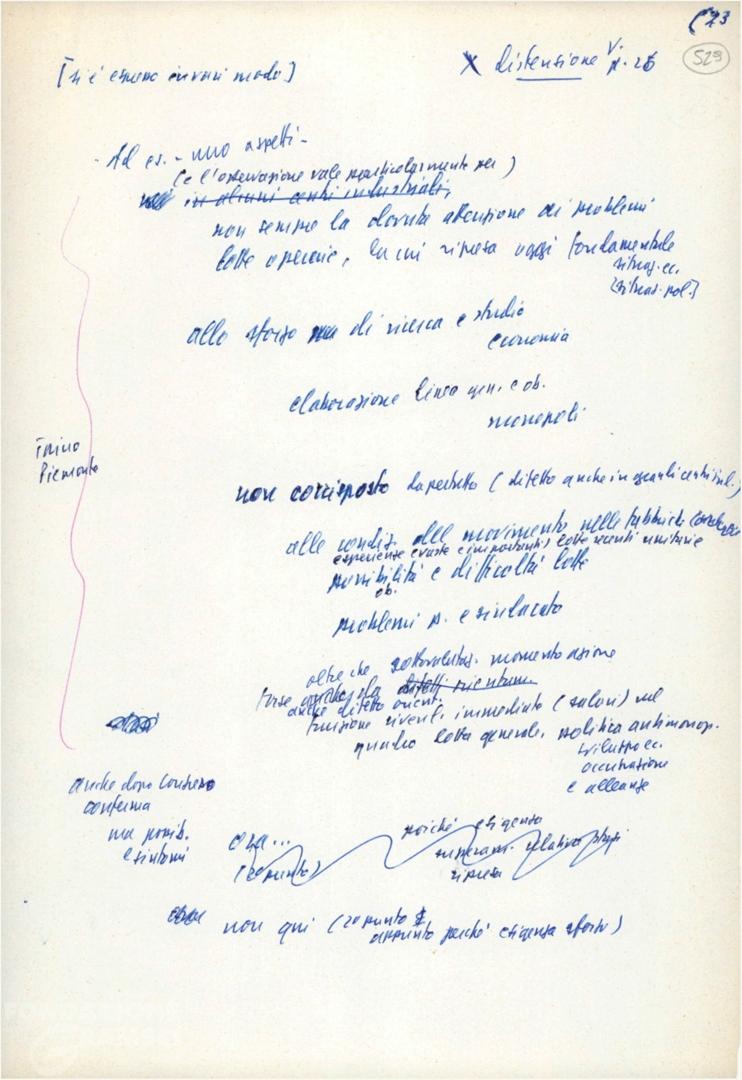 (23
529
X distensione V. p. 26
[si è espresso in vari modo]
- Ad es. - uno aspetti -
(e l'osservazione vale particolarmente per )
in alcuni centri industriali,
non sempre la dovuta attenzione ai problemi
lotte operaie, la cui ripresa oggi fondamentale
situaz. ec.
[situaz. pol.]
allo sforzo di ricerca e studio
economia
elaborazione linea gen. e ob.
monopoli
Torino
Piemonte
non corrisposto dapertutto (difetto anche in grandi centri ind.)
alle condiz. del movimento nelle fabbriche
esperienze vaste e importanti lotte recenti unitarie
possibilità e difficoltà lotte
ob.
problemi p. e sindacato
oltre che sottovalutaz. momento azione
forse anche da difetti
anche difetto orient.
tensione rivend. immediate (salari) nel
quadro lotta generale, politica antimonop.
sviluppo ec.
occupazione
e alleanze
anche dopo Congresso
conferma
ma possib.
e sintomi
ora...
(Io punto)
poiché esigenza
superam. relativa
ripresa
non qui (Io punto
appunto perché esigenza sforzo)
FONDAZIONE